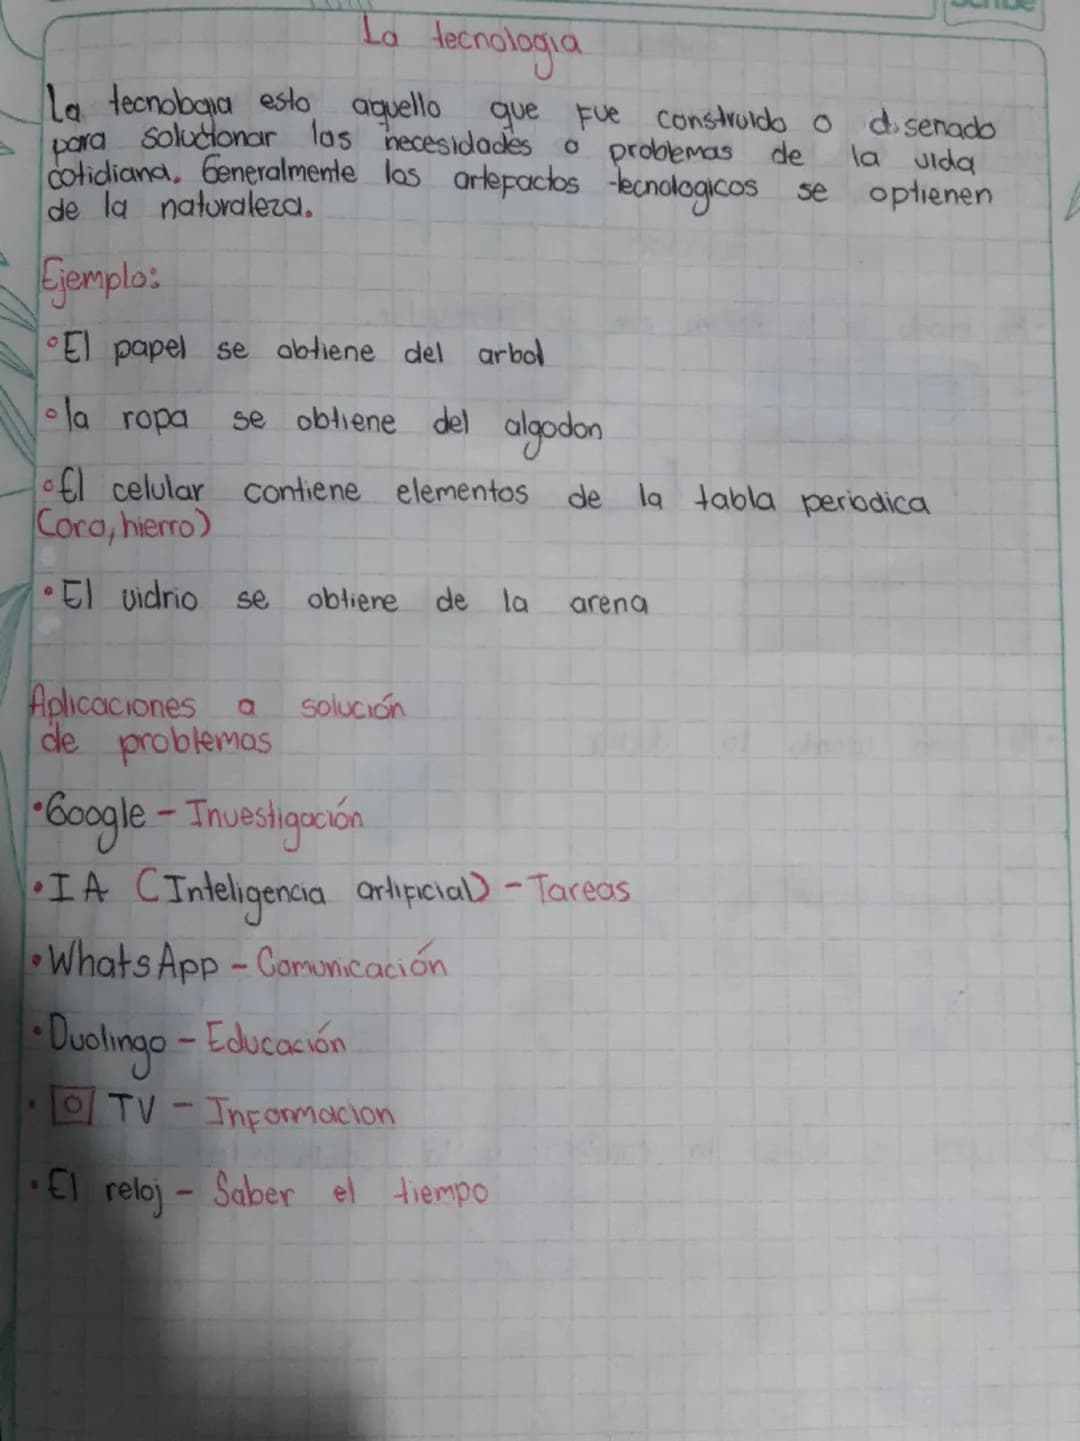 La tecnologia
La tecnologia esto aquello que fue construido o disenado
para solucionar las necesidades o problemas de la vida
cotidiana. Generalmente los artefactos tecnologicos se optienen
de la naturaleza.
Ejemplo:
El papel se obtiene del arbol
la ropa se obtiene del algodon
El celular contiene elementos de la tabla periodica
(oro, hierro)
El vidrio se obtiene de la arena
Aplicaciones a solución
de problemas
Google - Investigación
IA (Inteligencia artificial) - Tareas
WhatsApp - Comunicación
Duolingo - Educación
TV - Informacion
El reloj - Saber el tiempo